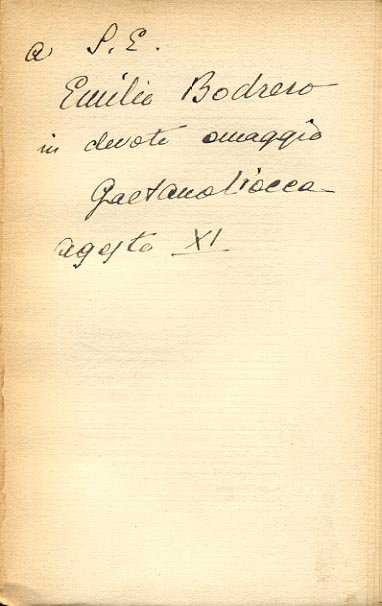 a S.E.
Emilio Bodrero
in devoto omaggio
Gaetano Ciocca
agosto XI